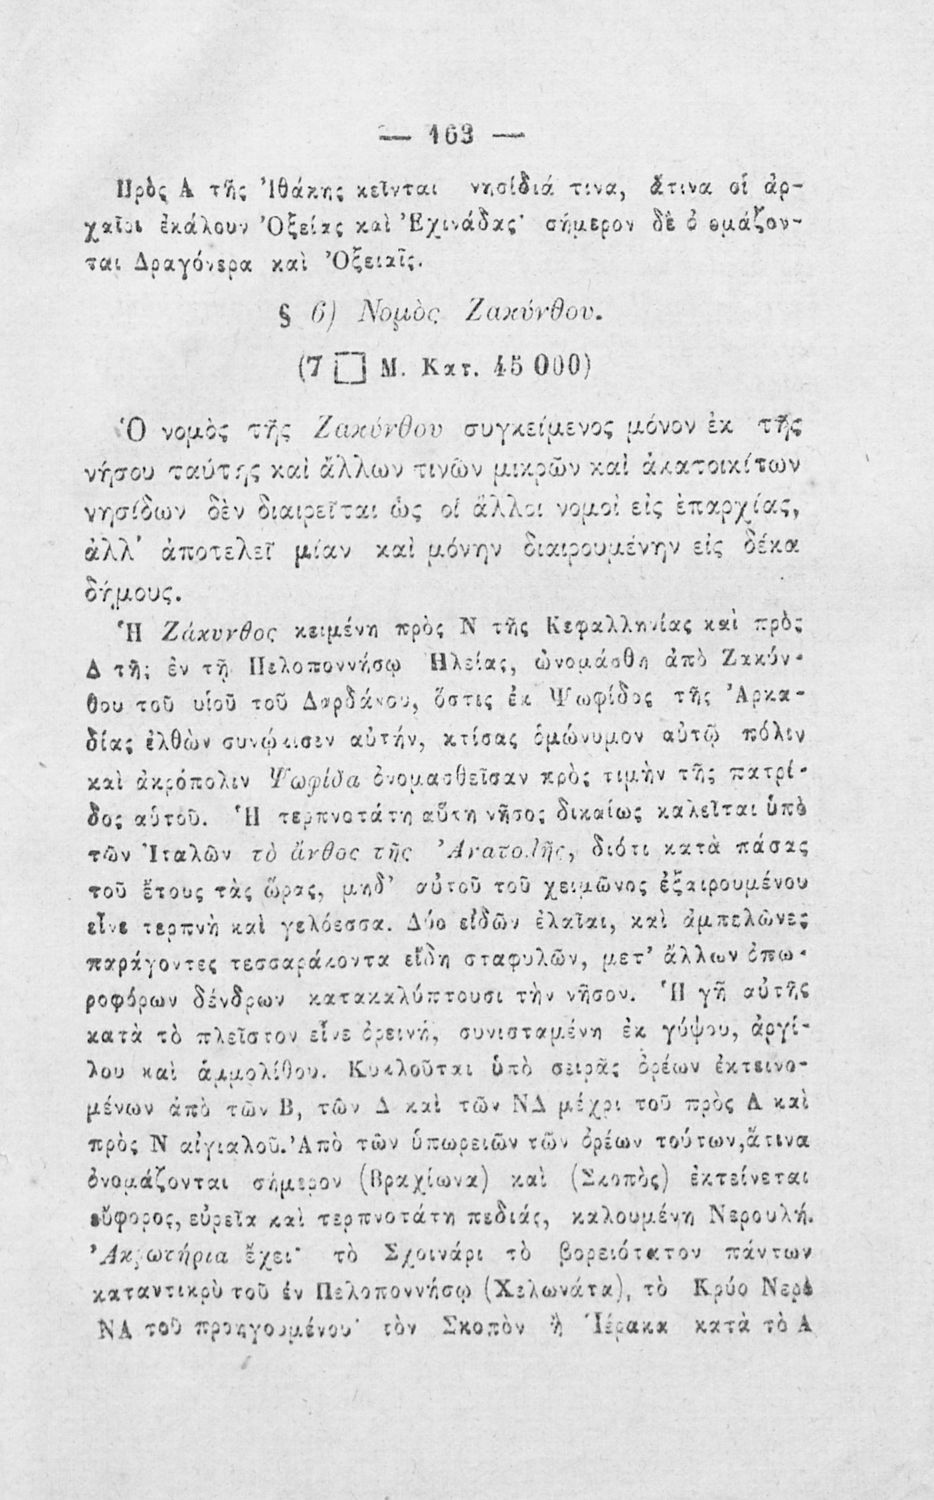 — 163 —
Πρὸς Α τῆς Ἰθάκης κεῖνται νησίδιά τινα, ἅτινα οἱ ἀρ-
χαῖοι ἐκάλουν Ὀξείας καὶ Ἐχινάδας· σήμερον δὲ ὀνομάζον-
ται Δραγόνερα καὶ Ὀξειαῖς.
§ 6) Νομὸς Ζακύνθου.
(7 □ Μ. Κατ. 45 000)
Ὁ νομὸς τῆς Ζακύνθου συγκείμενος μόνον ἐκ τῆς
νήσου ταύτης καὶ ἄλλων τινῶν μικρῶν καὶ ἀκατοικίτων
νησίδων δὲν διαιρεῖται ὡς οἱ ἄλλοι νομοὶ εἰς ἐπαρχίας,
ἀλλ' ἀποτελεῖ μίαν καὶ μόνην διαιρουμένην εἰς δέκα
δήμους.
Ἡ Ζάκυνθος κειμένη πρὸς Ν τῆς Κεφαλληνίας καὶ πρὸς
Δ τῆς ἐν τῇ Πελοποννήσῳ Ἠλείας, ὠνομάσθη ἀπὸ Ζακύν-
θου τοῦ υἱοῦ τοῦ Δαρδάνου, ὅστις ἐκ Ψωφίδος τῆς Ἀρκα-
δίας ἐλθὼν συνῴκισεν αὐτήν, κτίσας ὁμώνυμον αὐτῷ πόλιν
καὶ ἀκρόπολιν Ψωφίδα ὀνομασθεῖσαν πρὸς τιμὴν τῆς πατρί-
δος αὐτοῦ. Ἡ τερπνοτάτη αὕτη νῆσος δικαίως καλεῖται ὑπὸ
τῶν Ἰταλῶν τὸ ἄνθος τῆς Ἀνατολῆς, διότι κατὰ πάσας
τοῦ ἔτους τὰς ὥρας, μηδ' αὐτοῦ τοῦ χειμῶνος ἐξαιρουμένου
εἶνε τερπνὴ καὶ γελόεσσα. Δύο εἰδῶν ἐλαῖαι, καὶ ἀμπελῶνες
παράγοντες τεσσαράκοντα εἴδη σταφυλῶν, μετ' ἄλλων ὀπω-
ροφόρων δένδρων κατακαλύπτουσι τὴν νῆσον. Ἡ γῆ αὐτῆς
κατὰ τὸ πλεῖστον εἶνε ὀρεινή, συνισταμένη ἐκ γύψου, ἀργί-
λου καὶ ἀμμολίθου. Κυκλοῦται ὑπὸ σειρᾶς ὀρέων ἐκτεινο-
μένων ἀπὸ τῶν Β, τῶν Δ καὶ τῶν ΝΔ μέχρι τοῦ πρὸς Α καὶ
πρὸς Ν αἰγιαλοῦ. Ἀπὸ τῶν ὑπωρειῶν τῶν ὀρέων τούτων, ἅτινα
ὀνομάζονται σήμερον (Βραχίωνα) καὶ (Σκοπὸς) ἐκτείνεται
εὔφορος, εὐρεῖα καὶ τερπνοτάτη πεδιάς, καλουμένη Νερουλή.
Ἀκρωτήρια ἔχει· τὸ Σχοινάρι τὸ βορειότατον πάντων
καταντικρὺ τοῦ ἐν Πελοποννήσῳ (Χελωνάτα), τὸ Κρύο Νερὸ
ΝΑ τοῦ προηγουμένου· τὸν Σκοπὸν ἢ Ἱέρακα κατὰ τὸ Α